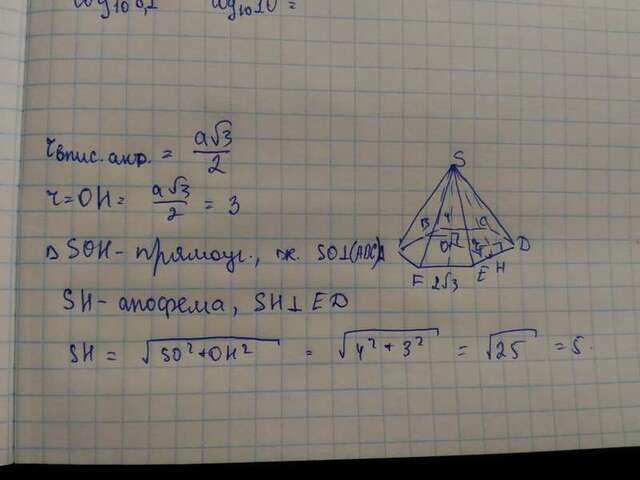 log₁₀0,1 log₁₀10 =
r впис. окр. = a√3/2
r = OH = a√3/2 = 3
△ SOH - прямоуг., т.к. SO⊥(ABC)
SH - апофема, SH ⊥ ED
SH = √SO²+OH² = √4² + 3² = √25 = 5.
S
B 4 C
O D
F 2√3 E H